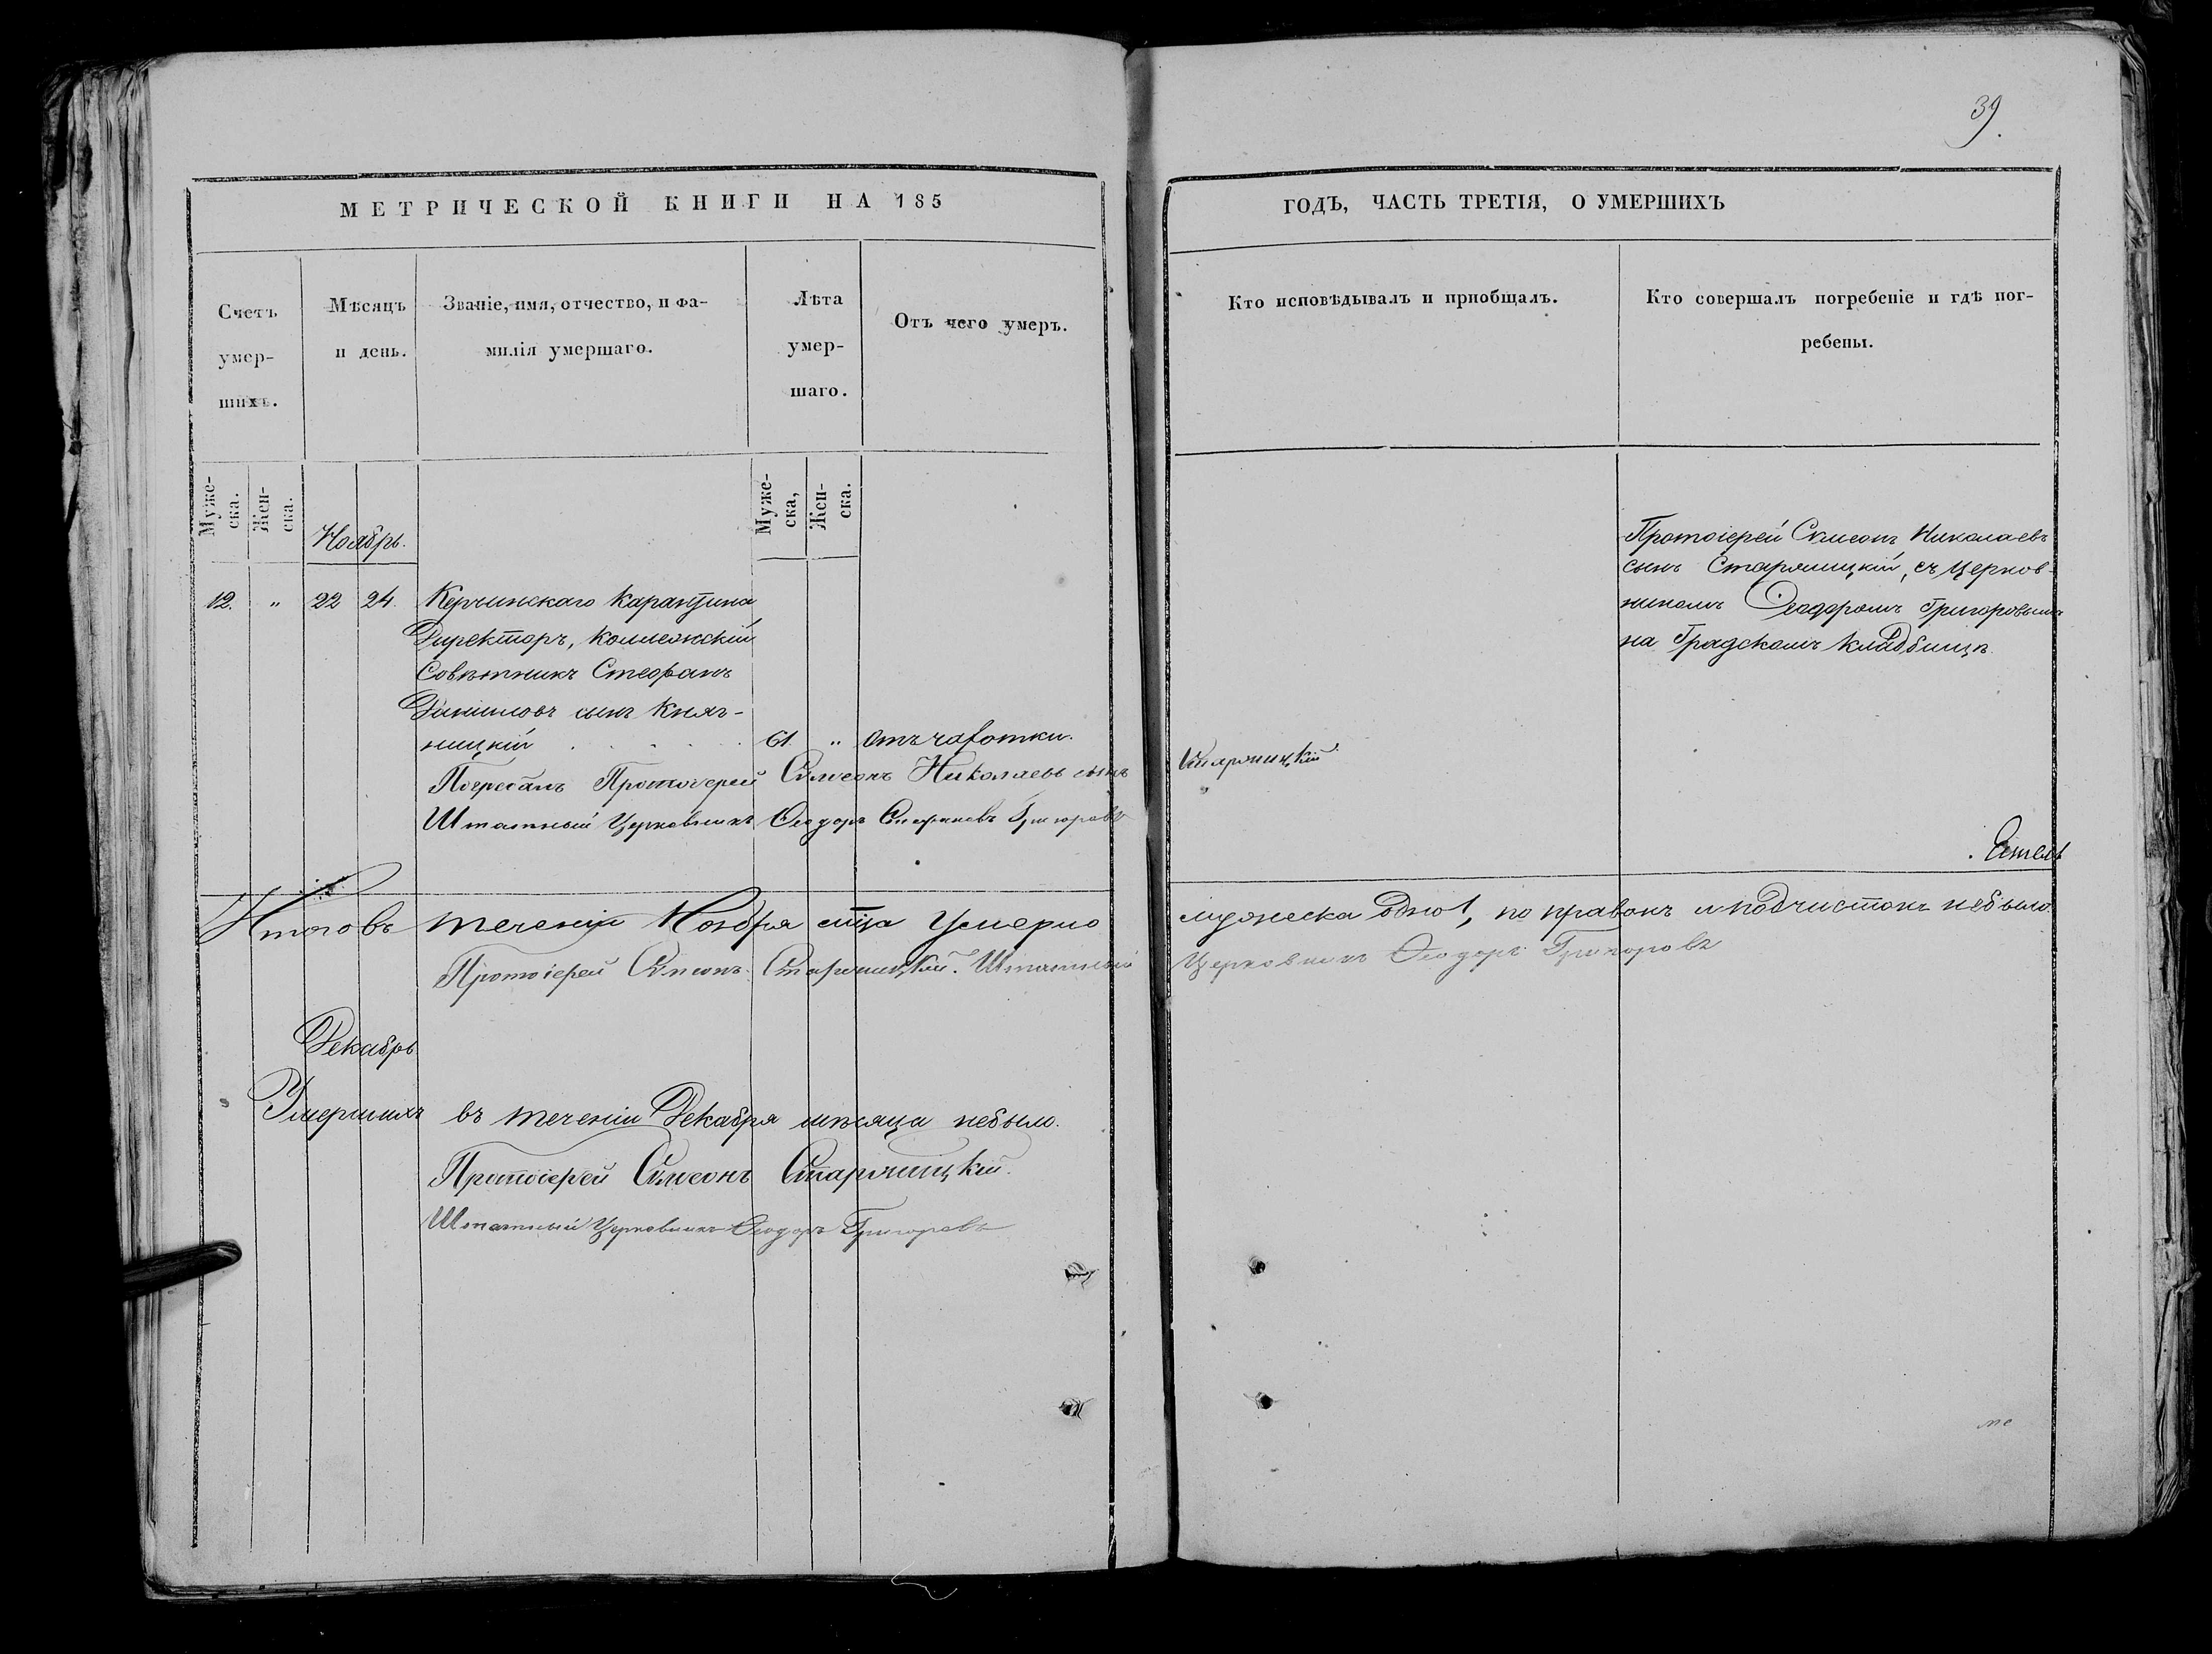 39.
МЕТРИЧЕСКОЙ КНИГИ НА 185
ГОДЪ, ЧАСТЬ ТРЕТІЯ, О УМЕРШИХЪ
Счетъ
умер-
шихъ.
Мѣсяцъ
и день.
Званіе, имя, отчество, и фа-
милія умершаго.
Лѣта
умер-
шаго.
Отъ чего умеръ.
Кто исповѣдывалъ и пріобщалъ.
Кто совершалъ погребеніе и гдѣ пог-
ребены.
Муже-
ска.
Жен-
ска.
Муже-
ска,
Жен-
ска.
Ноябрь.
12. " 22 24. Керчинскаго Карантина
Директоръ, Коллежскій
Совѣтникъ Стефанъ
Даниловъ сынъ Княж-
ницкій 61. " отъ чахотки.
Протоіерей Сѵмеонъ Николаевъ
сынъ Старчицкій, съ церков-
никомъ Ѳеодоромъ Григоровымъ
на Градскомъ кладбищѣ.
Погребалъ Протоіерей Сѵмеонъ Николаевъ сынъ Старчицкій
Штатный Церковникъ Ѳеодоръ Григоровъ
Итого въ теченіи Ноября мца умерло мужеска одно 1, поправокъ и подчистокъ небыло.
Протоіерей Сѵмеонъ Старчицкій. Штатный Церковникъ Ѳеодоръ Григоровъ
Декабрь
Умершихъ въ теченіи Декабря мѣсяца небыло.
Протоіерей Сѵмеонъ Старчицкій.
Штатный Церковникъ Ѳеодоръ Григоровъ